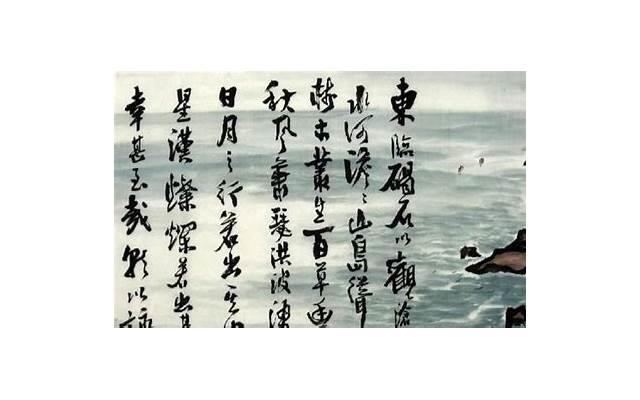 東臨碣石以觀滄
水何澹〻山島
樹木叢生百草豐
秋風蕭瑟洪波湧
日月之行若出其
星漢燦爛若出其
幸甚至哉歌以詠